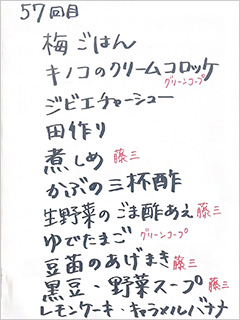 57回目
梅ごはん
キノコのクリームコロッケ
グリーンコープ
ジビエチャーシュー
田作り
煮しめ 藤三
かぶの三杯酢
生野菜のごま酢あえ 藤三
ゆでたまご グリーンコープ
豆苗のあげまき 藤三
黒豆・野菜スープ 藤三
レモンケーキ・キャラメルバナナ